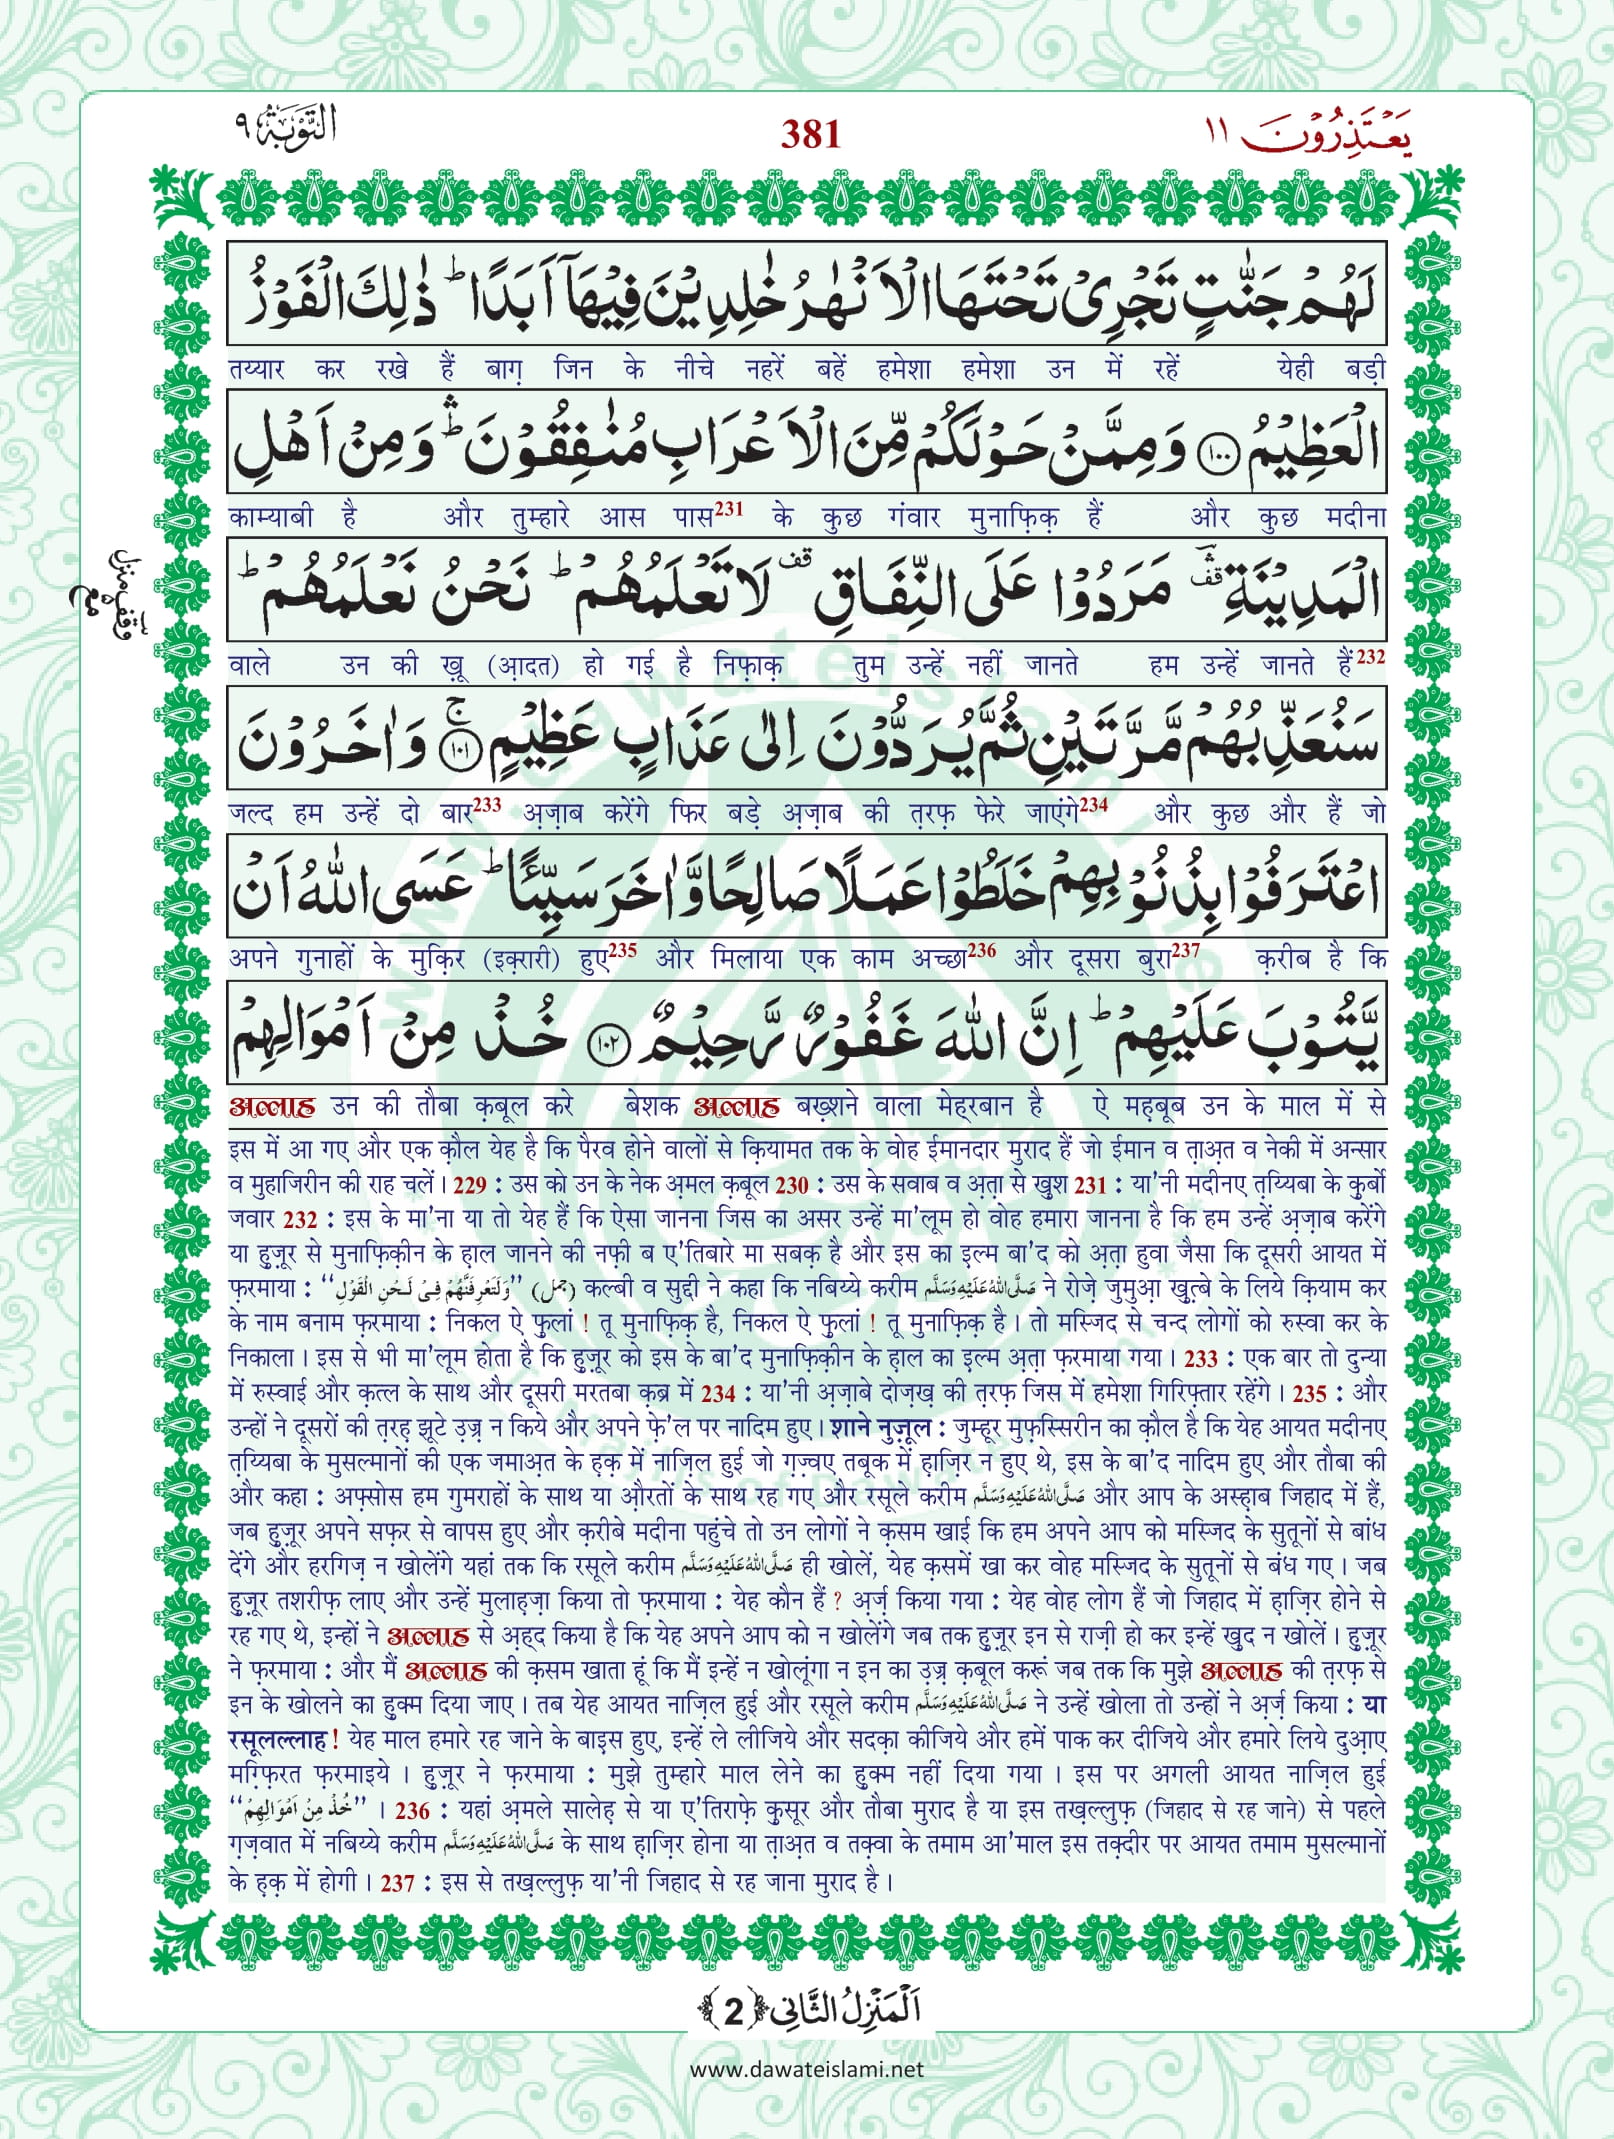 التَّوْبَة ٩
381
يَعْتَذِرُوْنَ ١١
لَهُمْ جَنّٰتٍ تَجْرِیْ تَحْتَهَا الْاَنْهٰرُ خٰلِدِیْنَ فِیْهَاۤ اَبَدًاؕ ذٰلِكَ الْفَوْزُ
तय्यार कर रखे हैं बाग़ जिन के नीचे नहरें बहें हमेशा हमेशा उन में रहें येही बड़ी
الْعَظِیْمُ ﴿۱۰۰﴾ وَ مِمَّنْ حَوْلَكُمْ مِّنَ الْاَعْرَابِ مُنٰفِقُوْنَۛؕ وَ مِنْ اَهْلِ
काम्याबी है और तुम्हारे आस पास231 के कुछ गंवार मुनाफ़िक़ हैं और कुछ मदीना
الْمَدِیْنَةِ ﱎ مَرَدُوْا عَلَى النِّفَاقِ قف لَا تَعْلَمُهُمْؕ نَحْنُ نَعْلَمُهُمْؕ
वाले उन की ख़ू (आ़दत) हो गई है निफ़ाक़ तुम उन्हें नहीं जानते हम उन्हें जानते हैं232
سَنُعَذِّبُهُمْ مَّرَّتَیْنِ ثُمَّ یُرَدُّوْنَ اِلٰى عَذَابٍ عَظِیْمٍۚ ﴿۱۰۱﴾ وَ اٰخَرُوْنَ
जल्द हम उन्हें दो बार233 अ़ज़ाब करेंगे फिर बड़े अ़ज़ाब की त़रफ़ फेरे जाएंगे234 और कुछ और हैं जो
اعْتَرَفُوْا بِذُنُوْبِهِمْ خَلَطُوْا عَمَلًا صَالِحًا وَّ اٰخَرَ سَیِّئًاؕ عَسَى اللّٰهُ اَنْ
अपने गुनाहों के मुक़िर (इक़्रारी) हुए235 और मिलाया एक काम अच्छा236 और दूसरा बुरा237 क़रीब है कि
یَّتُوْبَ عَلَیْهِمْؕ اِنَّ اللّٰهَ غَفُوْرٌ رَّحِیْمٌ ﴿۱۰۲﴾ خُذْ مِنْ اَمْوَالِهِمْ
अल्लाह उन की तौबा क़बूल करे बेशक अल्लाह बख़्शने वाला मेह्‌रबान है ऐ मह़बूब उन के माल में से
इस में आ गए और एक क़ौल येह है कि पैरव होने वालों से क़ियामत तक के वोह ईमानदार मुराद हैं जो ईमान व त़ाअ़त व नेकी में अन्सार
व मुहाजिरीन की राह चलें। 229 : उस को उन के नेक अ़मल क़बूल 230 : उस के सवाब व अ़त़ा से खुश 231 : या'नी मदीनए त़य्यिबा के कुर्बो
जवार 232 : इस के मा'ना या तो येह हैं कि ऐसा जानना जिस का असर उन्हें मा'लूम हो वोह हमारा जानना है कि हम उन्हें अ़ज़ाब करेंगे
या हुज़ूर से मुनाफ़िक़ीन के ह़ाल जानने की नफ़ी ब ए'तिबारे मा सबक़ है और इस का इल्म बा'द को अ़त़ा हुवा जैसा कि दूसरी आयत में
फ़रमाया : ‘‘وَلَتَعْرِفَنَّهُمْ فِیْ لَحْنِ الْقَوْلِ’’ (جمل) कल्बी व सुद्दी ने कहा कि नबिय्ये करीम صَلَّى اللهُ عَلَيْهِ وَسَلَّم ने रोज़े जुमुआ़ खुत़्बे के लिये क़ियाम कर
के नाम बनाम फ़रमाया : निकल ऐ फुलां ! तू मुनाफ़िक़ है, निकल ऐ फुलां ! तू मुनाफ़िक़ है। तो मस्जिद से चन्द लोगों को रुस्वा कर के
निकाला। इस से भी मा'लूम होता है कि हुज़ूर को इस के बा'द मुनाफ़िक़ीन के ह़ाल का इल्म अ़त़ा फ़रमाया गया। 233 : एक बार तो दुन्या
में रुस्वाई और क़त्ल के साथ और दूसरी मरतबा क़ब्र में 234 : या'नी अ़ज़ाबे दोज़ख़ की त़रफ़ जिस में हमेशा गिरिफ़्तार रहेंगे। 235 : और
उन्हों ने दूसरों की त़रह़ झूटे उ़ज़्र न किये और अपने फ़े'ल पर नादिम हुए। शाने नुज़ूल : जुम्हूर मुफ़स्सिरीन का क़ौल है कि येह आयत मदीनए
त़य्यिबा के मुसल्मानों की एक जमाअ़त के ह़क़ में नाज़िल हुई जो ग़ज़्वए तबूक में ह़ाज़िर न हुए थे, इस के बा'द नादिम हुए और तौबा की
और कहा : अफ़्सोस हम गुमराहों के साथ या औ़रतों के साथ रह गए और रसूले करीम صَلَّى اللهُ عَلَيْهِ وَسَلَّم और आप के अस्ह़ाब जिहाद में हैं,
जब हुज़ूर अपने सफ़र से वापस हुए और क़रीबे मदीना पहुंचे तो उन लोगों ने क़सम खाई कि हम अपने आप को मस्जिद के सुतूनों से बांध
देंगे और हरगिज़ न खोलेंगे यहां तक कि रसूले करीम صَلَّى اللهُ عَلَيْهِ وَسَلَّم ही खोलें, येह क़समें खा कर वोह मस्जिद के सुतूनों से बंध गए। जब
हुज़ूर तशरीफ़ लाए और उन्हें मुलाह़ज़ा किया तो फ़रमाया : येह कौन हैं ? अ़र्ज़ किया गया : येह वोह लोग हैं जो जिहाद में ह़ाज़िर होने से
रह गए थे, इन्हों ने अल्लाह से अ़ह्‌द किया है कि येह अपने आप को न खोलेंगे जब तक हुज़ूर इन से राज़ी हो कर इन्हें खुद न खोलें। हुज़ूर
ने फ़रमाया : और मैं अल्लाह की क़सम खाता हूं कि मैं इन्हें न खोलूंगा न इन का उ़ज़्र क़बूल करूं जब तक कि मुझे अल्लाह की त़रफ़ से
इन के खोलने का हुक्म दिया जाए। तब येह आयत नाज़िल हुई और रसूले करीम صَلَّى اللهُ عَلَيْهِ وَسَلَّم ने उन्हें खोला तो उन्हों ने अ़र्ज़ किया : या
रसूलल्लाह ! येह माल हमारे रह जाने के बाइस हुए, इन्हें ले लीजिये और सदक़ा कीजिये और हमें पाक कर दीजिये और हमारे लिये दुआ़ए
मग़्फ़िरत फ़रमाइये। हुज़ूर ने फ़रमाया : मुझे तुम्हारे माल लेने का हुक्म नहीं दिया गया। इस पर अगली आयत नाज़िल हुई
‘‘خُذْ مِنْ اَمْوَالِهِمْ’’। 236 : यहां अ़मले सालेह़ से या ए'तिराफ़े कुसूर और तौबा मुराद है या इस तख़ल्लुफ़ (जिहाद से रह जाने) से पहले
ग़ज़वात में नबिय्ये करीम صَلَّى اللهُ عَلَيْهِ وَسَلَّم के साथ ह़ाज़िर होना या त़ाअ़त व तक़्वा के तमाम आ'माल इस तक़्दीर पर आयत तमाम मुसल्मानों
के ह़क़ में होगी। 237 : इस से तख़ल्लुफ़ या'नी जिहाद से रह जाना मुराद है।
اَلْمَنْزِلُ الثَّانِی ﴿2﴾
www.dawateislami.net